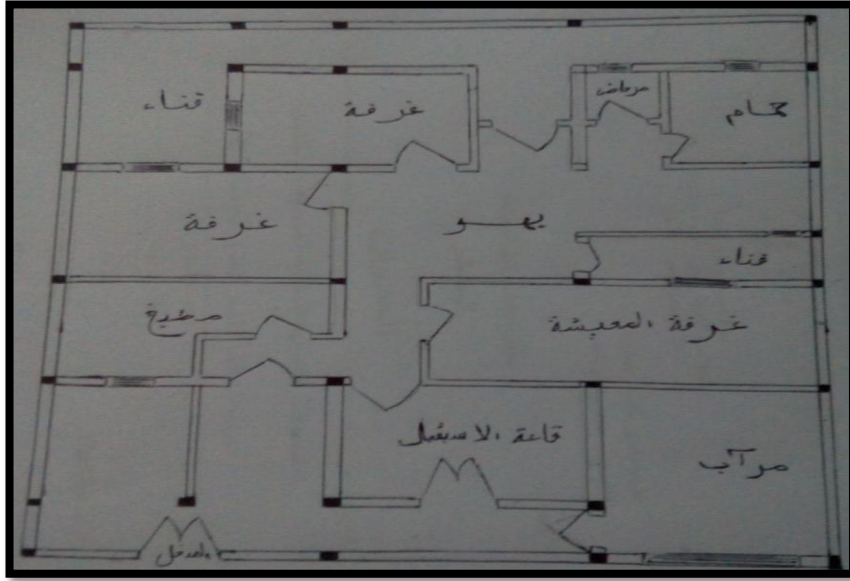 مرحاض
فناء
غرفة
حمام
غرفة
بهو
فناء
مطبخ
غرفة المعيشة
قاعة الاستقبال
مرآب
المدخل